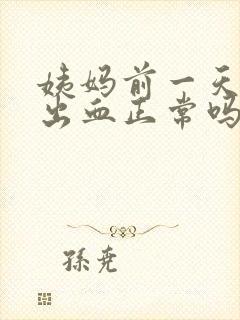 姨妈前一天
出血正常吗
孫尧